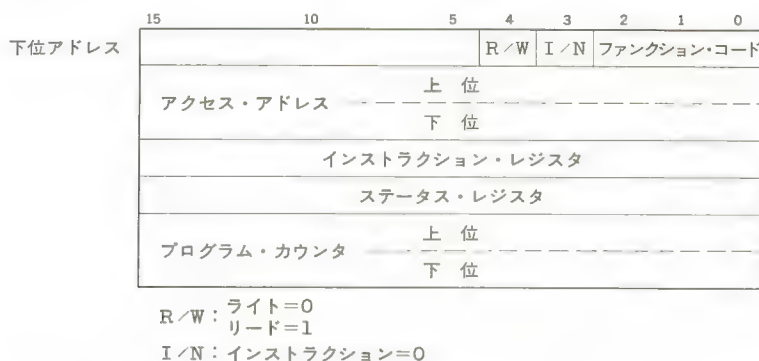 15 10 5 4 3 2 1 0
下位アドレス R/W I/N ファンクション・コード
アクセス・アドレス 上位
下位
インストラクション・レジスタ
ステータス・レジスタ
プログラム・カウンタ 上位
下位
R/W：ライト=0
リード=1
I/N：インストラクション=0